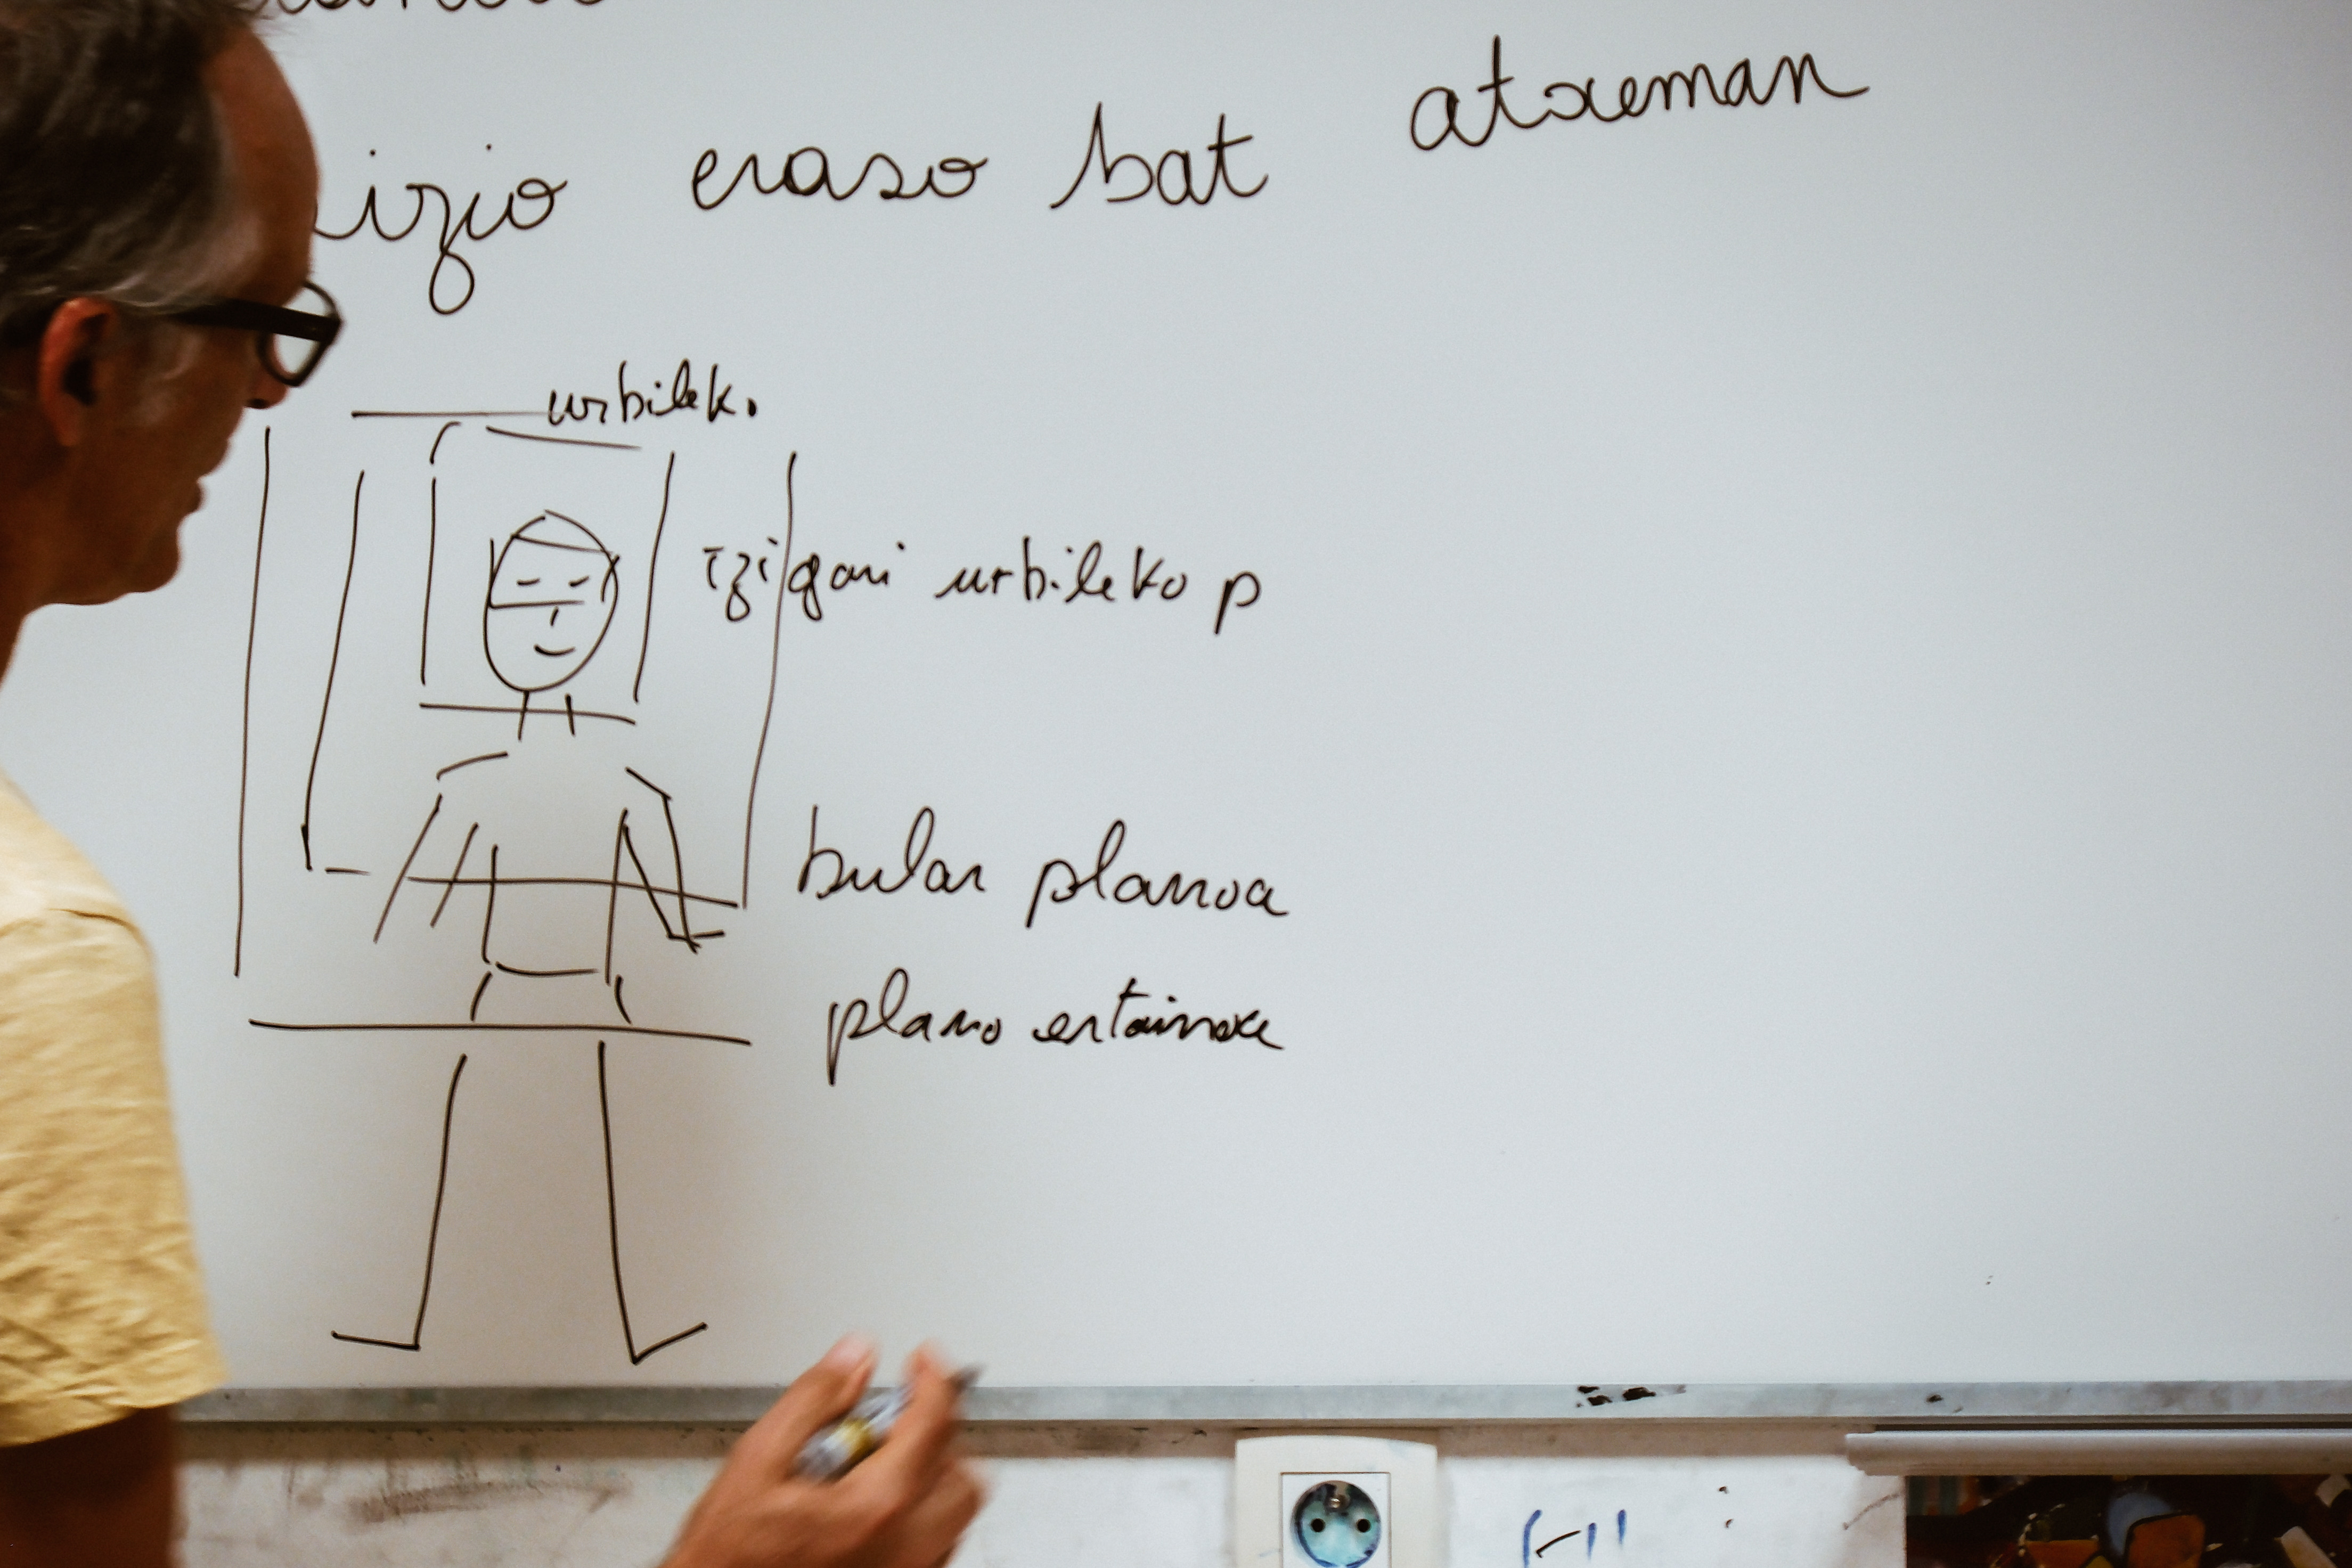 izio eraso bat atxeman
urbileko
izigari urbileko p
bular planoa
plano ertainoa